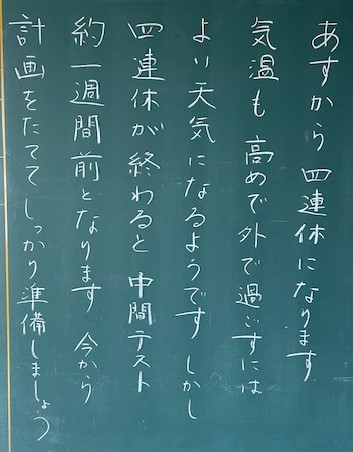 あすから 四連休になります
気温も 高めで 外で 過ごすには
よい天気になるようです しかし
四連休が 終わると 中間テスト
約一週間前となります 今から
計画をたてて しっかり準備しましょう